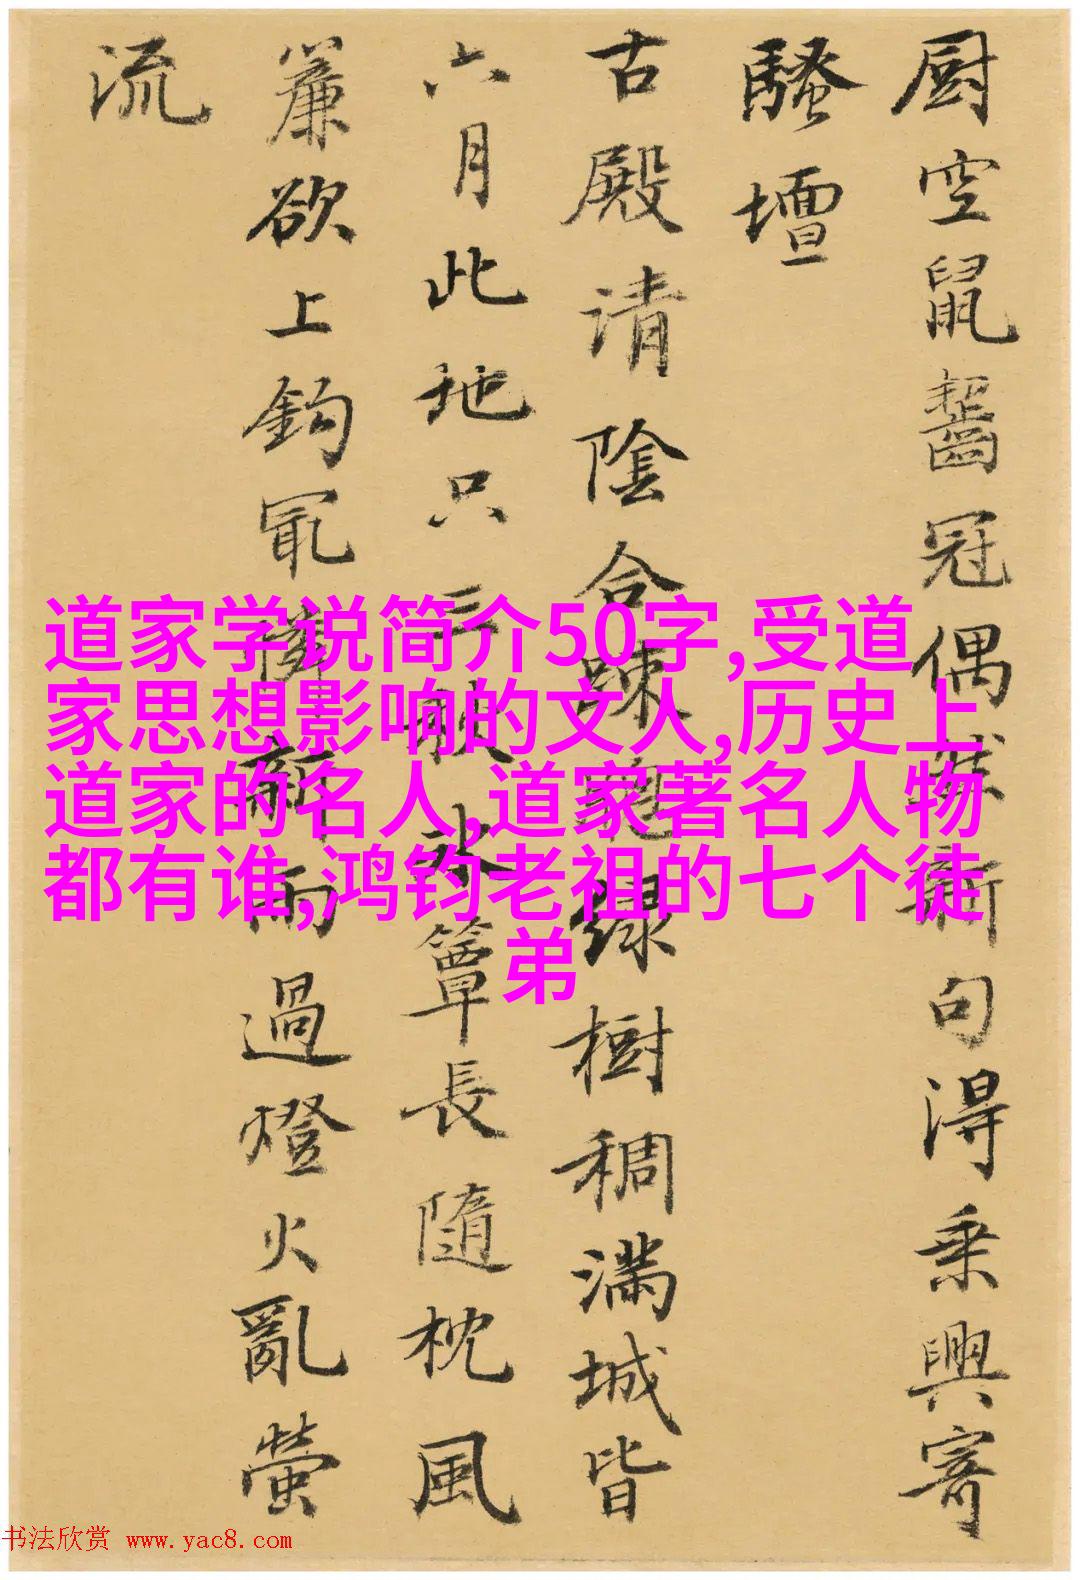 厨空鼠齧冠偶然新句得乗興寄
騷壇
古殿请陰合疎槐緑樹稠满城皆
六月此地只三秋氷簟長隨枕風
簾欲上鈎冣憐新雨過燈火亂螢
流
道家学说简介50字,受道
家思想影响的文人,历史上
道家的名人,道家著名人物
都有谁,鸿钧老祖的七个徒
弟
书法欣赏 www.yac8.com